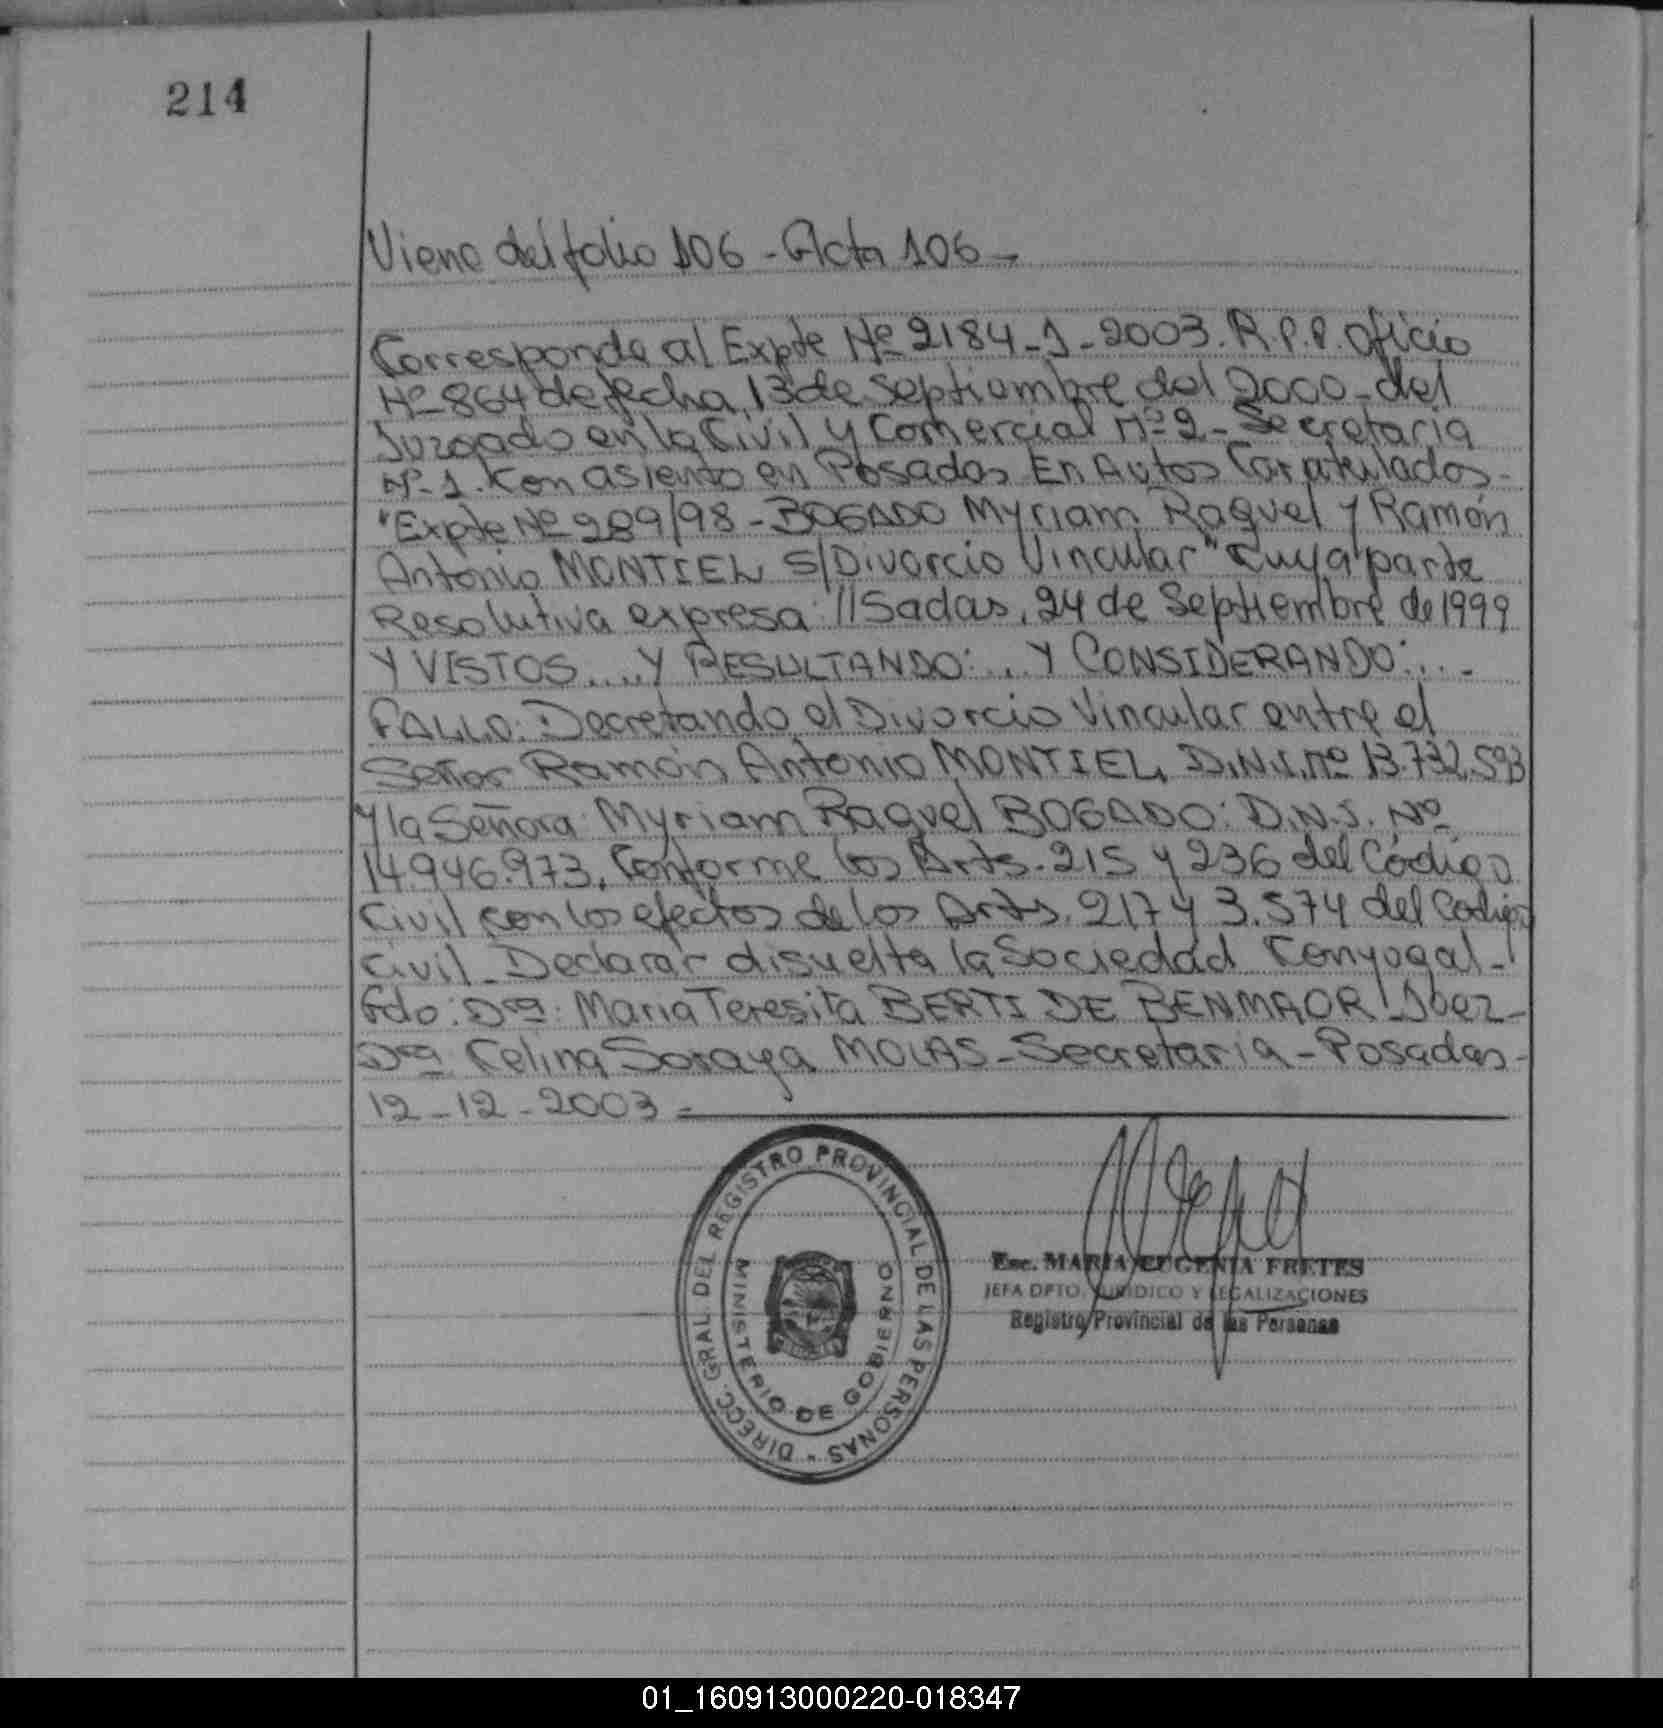 214
Viene del folio 106 - Acta 106 -
Corresponde al Expte Nº 2184-J-2003. R.P.P. Oficio
Nº 864 de fecha, 13 de Septiembre del 2000 - del
Juzgado en la Civil y Comercial Nº 2 - Secretaria
Nº 1. Con asiento en Posadas En Autos Caratulados -
"Expte Nº 289/98 - BOGADO Myriam Raquel y Ramón
Antonio MONTIEL S/Divorcio Vincular" Cuya parte
Resolutiva expresa: //Sadas, 24 de Septiembre de 1999
Y VISTOS.... Y RESULTANDO:... Y CONSIDERANDO:... -
FALLO: Decretando el Divorcio Vincular entre el
Señor Ramón Antonio MONTIEL, D.N.I. nº 13.732.593
Y la Señora: Myriam Raquel BOGADO: D.N.I. Nº
14.946.973, Conforme los Arts. 215 y 236 del Código
Civil con los efectos de los Arts. 217 y 3.574 del Código
Civil - Declarar disuelta la Sociedad Conyugal -
Fdo: Dra: Maria Teresita BERTI DE BENMAOR - Juez -
Dra. Celina Soraya MOLAS - Secretaria - Posadas -
12 - 12 - 2003 =
DIRECC. GRAL. DEL REGISTRO PROVINCIAL DE LAS PERSONAS -
MINISTERIO DE GOBIERNO
Esc. MARIA EUGENIA FRETES
JEFA DPTO. JURIDICO Y LEGALIZACIONES
Registro Provincial de las Personas
01_160913000220-018347